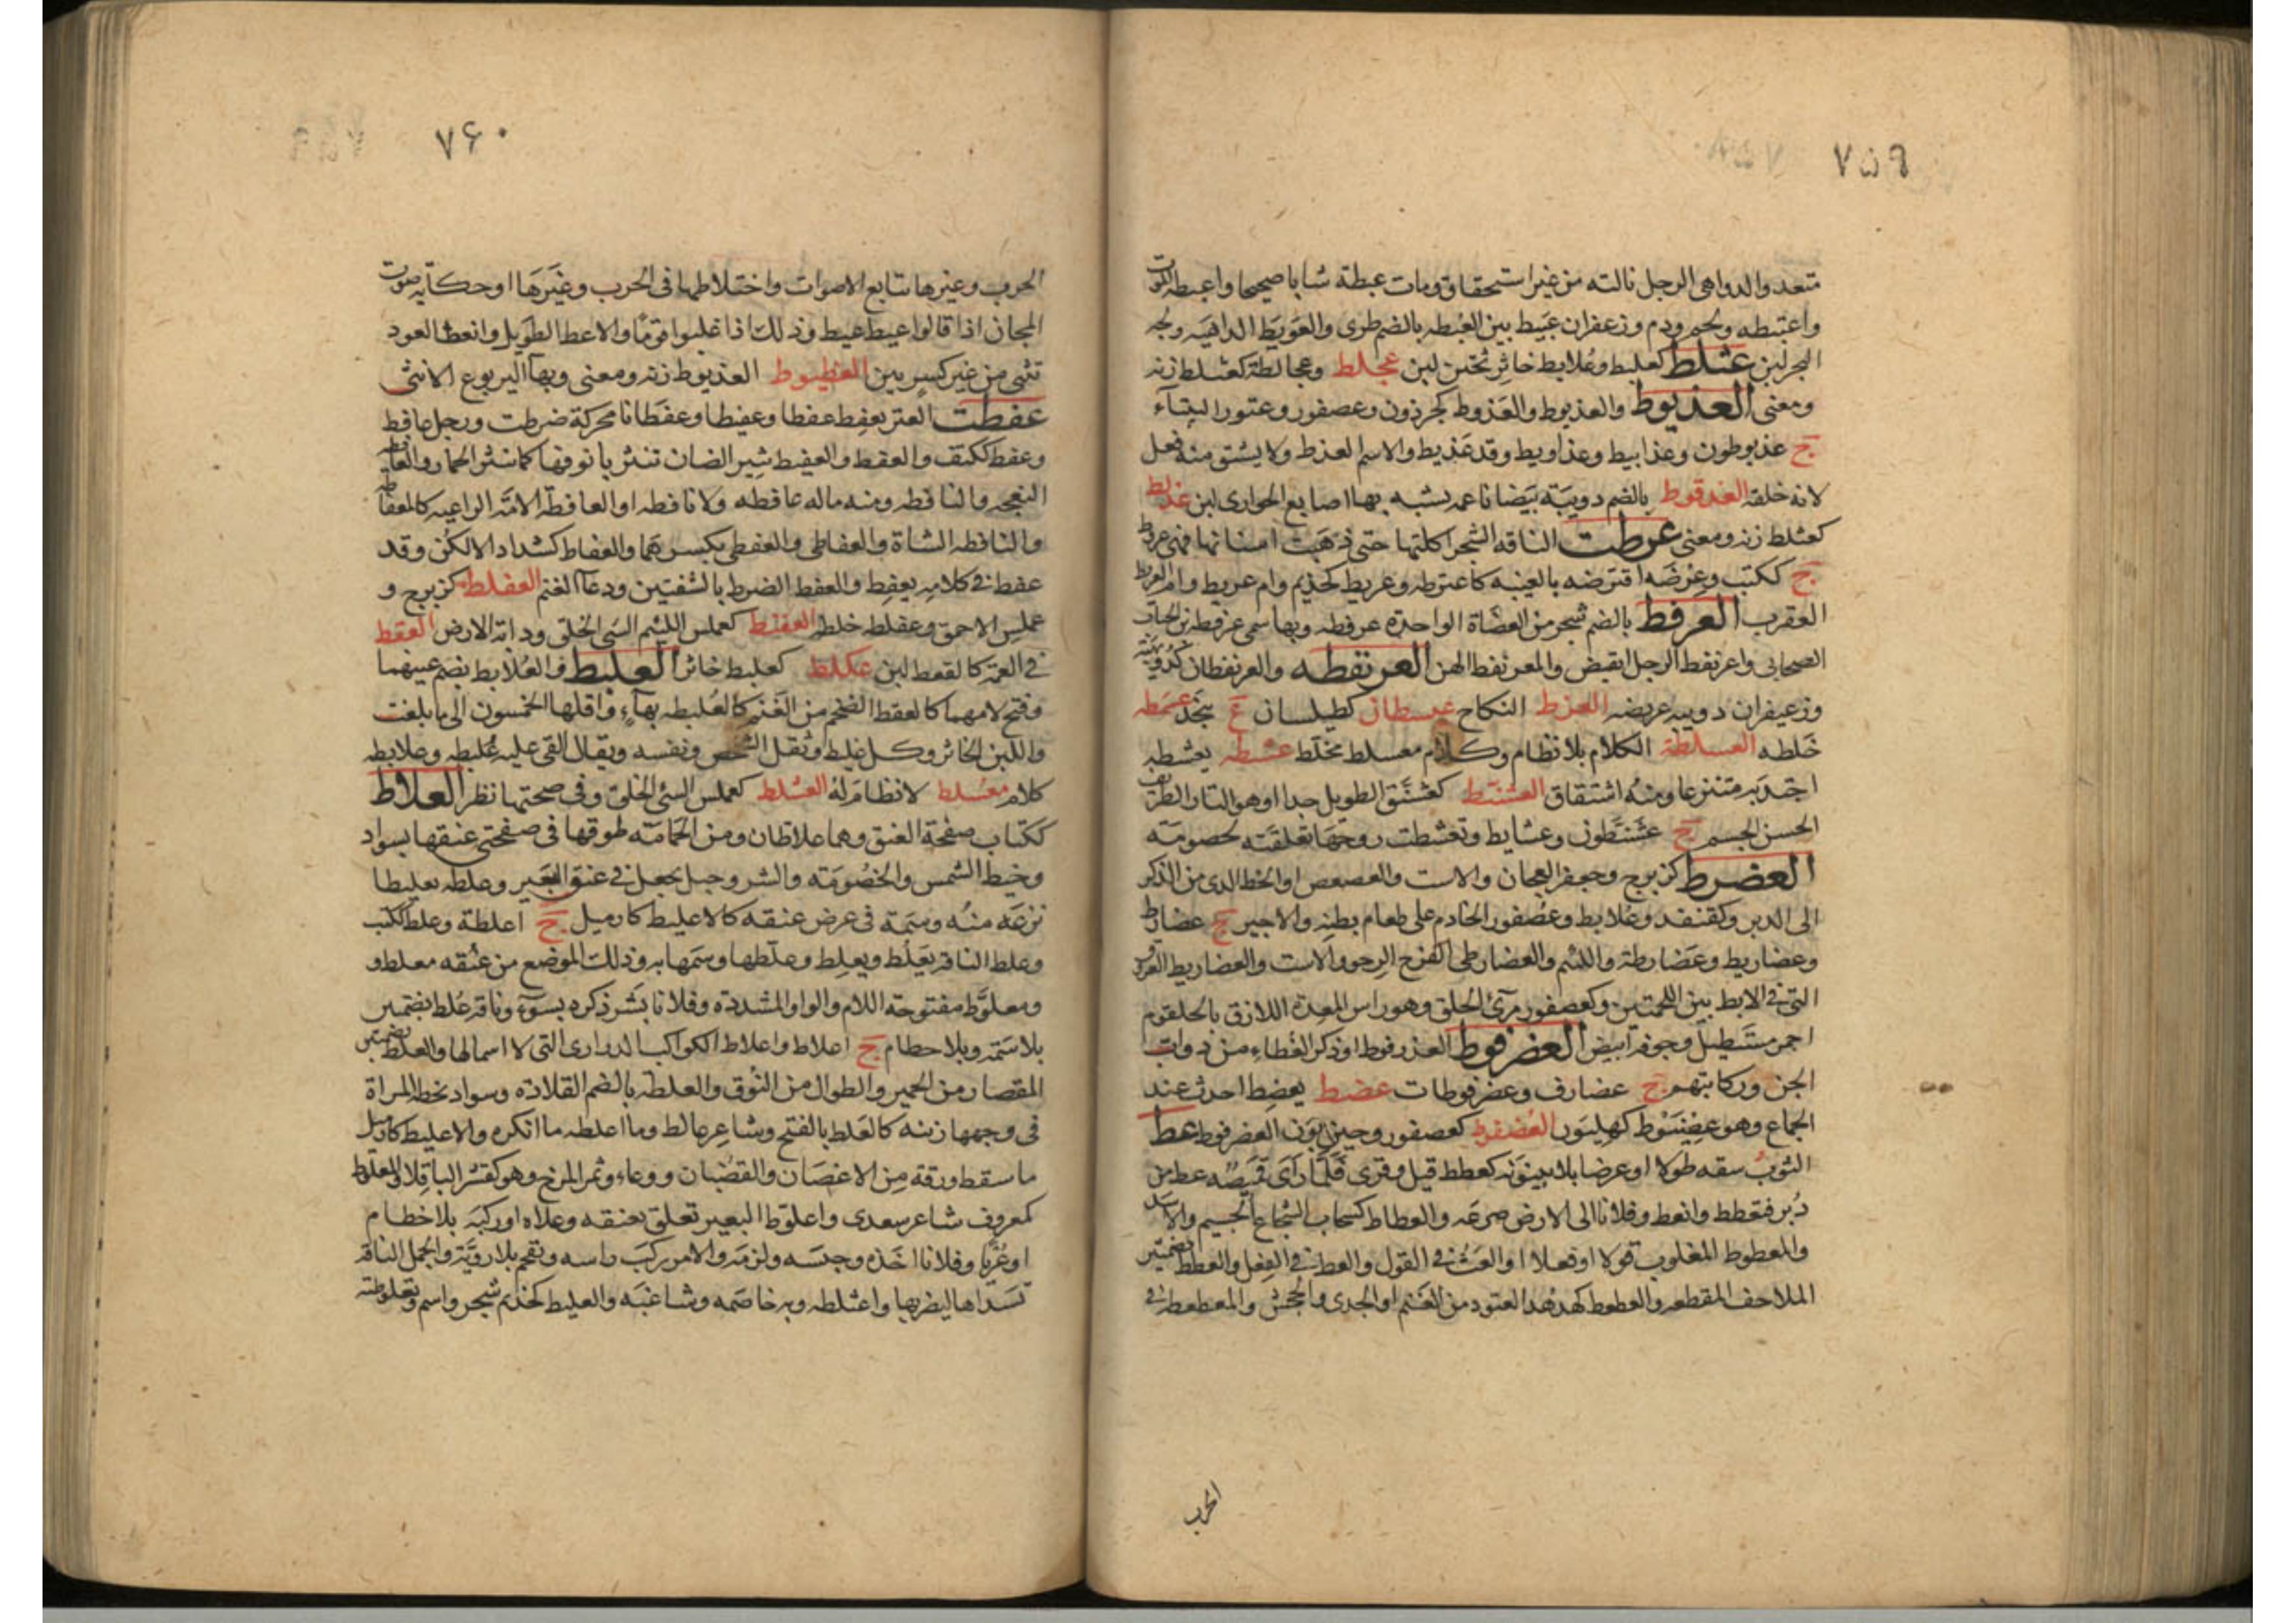 ٧٥٩
متعد والدواهى الرجل نالته من غير استحقاق ومات عبطة شابا صحيحا واعبطه الموت
واعتبطه ولحم ودم وزعفران عبيط بين العُبطه بالضم طرى والعَوبَط الداهيه ولجه
البحر لبن عثلط كعلبط وعُلابط خاثِر ثخين لبن عجلط وعجالطة كعثلط زنه
ومعنى العذيوط والعذيوط والعَذوط كجرذون وعصفور وعتور التيتاء
ج عذيوطون وعذابيط وعذاويط وقد عَذيط والاسم العذط ولا يشتق منه فعل
لانه خلقه العذقوط بالضم دويبَة بَيضا ناعمه يشبه بها اصابع الجوارى لبن عذلط
كعثلط زنه ومعنى عرطت الناقه الشجر اكلتها حتى ذهبت اسنانها فهى عروط
ج ككتب وعِرْضَه اقترضه بالغيبه كاعترطه وعريط كحذيم وام عريط وام العريط
العقرب العرفط بالضم شجر من العضاة الواحدة عرفطه وبها سمى عرفطة بن الحباب
الصحابى واعرنفط الرجل انقبض والمعرنفط الهن العرنقطه والعرنقطان كدويبة
وزعيفران دويبه عريضه العزط النكاح عسطان كطيلسان ع بنجد عسمطه
خَلطه العسلطة الكلام بلا نظام وكلام معسلط مخلط عشطه يعشطه
اجتذبه متنزعا ومنهُ اشتقاق العشنط كعشنق الطويل جدا او هو التار الظريف
الحسن الجسم ج عشَنّطون وعشايط وتعشطت زوجَهَا تعلقَته لخصومَه
العضرط كزبرج وجعفر العجان والاست والعصعص او الخط الذى من الذكر
الى الدبر وكقنفذ وعُلابط وعُصفور الخادم على طعام بطنِه والاجير ج عضارط
وعضاريط وعَضَارطة واللئيم والعضارطى الفرج الرِخو والاست والعضاريط العروق
التى فى الابط بين اللحمتين وكعصفور مرئ الحلق وهو راس المعدة اللازق بالحلقوم
احمر مستطيل وجوفه ابيض العضرفوط العذرفوط او ذكر العظاء من دواب
الجن وركابتهم ج عضارف وعضرفوطات عضط يعضِط احدث عند
الجماع وهو عِضيَوْط كهِليَون العُضفوط كعصفور وحيزبون العضرفوط عط
الثوبُ شقه طولا او عرضا بلا بينونَه كعطط قيل وقرى فَلَمَّا رَاى قَميصَه عط من
دُبر فقطط وانعط وفلانا الى الارض صرعَه والعطاط كسَحاب الشجاع الجسيم والاسد
والمعطوط المغلوب قولا او فعلا او العَتُّ فى القول والعط فى الفِعل والعطط بضمتين
الملاحف المقطعه والعطعط كهدهد العتود من الغنم او الجدى والجحش والمعطعط فى
الحرب
٧۶٠
الحرب وغيرها تتابع الاصوات واختلاطها فى الحرب وغَيرَهَا او حكايه صوت
المجان اذا قالوا عيط عيط وذلك اذا غلبوا قومًا والاعط الطويل وانعط العود
تثنى من غير كسرٍ بين العظيوط العذيوط زنه ومعنى وبهآ اليربوع الانثى
عفطت العنز يعفِط عفطا وعفيطا وعفَطانا محركة ضرطت ورجل عافط
وعفط ككتف والعفط والعفيط نثير الضان تنثر بانوفها كما ينثر الحمار والعافطه
النعجه والنافطه ومنه ماله عافطه ولا نافطه او العافطة الامَة الراعيه كالعفاطه
والنافطه الشاة والعفاطى والعفطى بكسرهما والعفاط كشداد الالكَن وقد
عفط فى كلامه يعفِط والعفط الضرط بالشفتين ودعآ الغنم العفلط كزبرج و
عملس الاحمق وعفلطه خلطه العفنط كعملس اللئيم السَئ الخلق ودابة الارض العقط
فى العمه كالقعط لبن عكلط كعلبط خاثر العلبط والعُلابط بضم عينهما
وفتح لامهما كالعقط الضخم من الغَنم كالعُلبطه بهآء واقلها الخمسون الى ما بلغت
واللبن الخاثر وكل غليظ وثقل الشخص ونفسه ويقال القى عليه عُلبطه وعلابطه
كلام معُسلط لا نظام له العَسْلط كعملس السئ الخلق وفى صحتها نظر العلاط
ككتاب صفحة العنق وهما علاطان ومن الحَمامَة طوقها فى صفحتى عنقها بسواد
وخيط الشمس والخصُومَة والشر وحبل يجعل فى عنق البَعير وعلطه تعليطا
نزعَه منهُ وسِمَة فى عرض عنقه كالاعليط كازميل ج اعلطة وعلط ككتب
وعلط الناقه يَعلُط ويعلِط وعلطها وسَمَها به وذلك الموضع من عنُقه معلط و
ومعلَوَّط مفتوحة اللام والواو المشددة وفلانا بشر ذكره بسوء وناقة عُلط بضمتين
بلا سَمة وبلا حطام ج اعلاط واعلاط الكواكب الدرارى التى لا اسمآ لها والعلط بضمتين
القصار من الحمير والطوال من النُوق والعلطه بالضم القلاده وسواد تخطه المراة
فى وجهها زينه كالعَلط بالفتح وشاعِر عالط وما اعلطه ما انكره والاعليط كازميل
ما سقط ورقه مِن الاغصَان والقضبان ووعاء ثمر المرخ وهو كقشر الباقلا والمعلوط
كمعروف شاعر سعدى واعلوّط البعير تعلق بعنقه وعلاه او ركبَه بلا خطام
او عُرْيًا وفلانا اخَذه وحبسَه ولزمَه والامر ركبَ راسه وتقحم بلا رويّة والجمل الناقه
تسَداها ليضربها واعتلطه وبه خاصَمه وشاغبَه والعليط كحذيم شجر واسم وتعلوطته